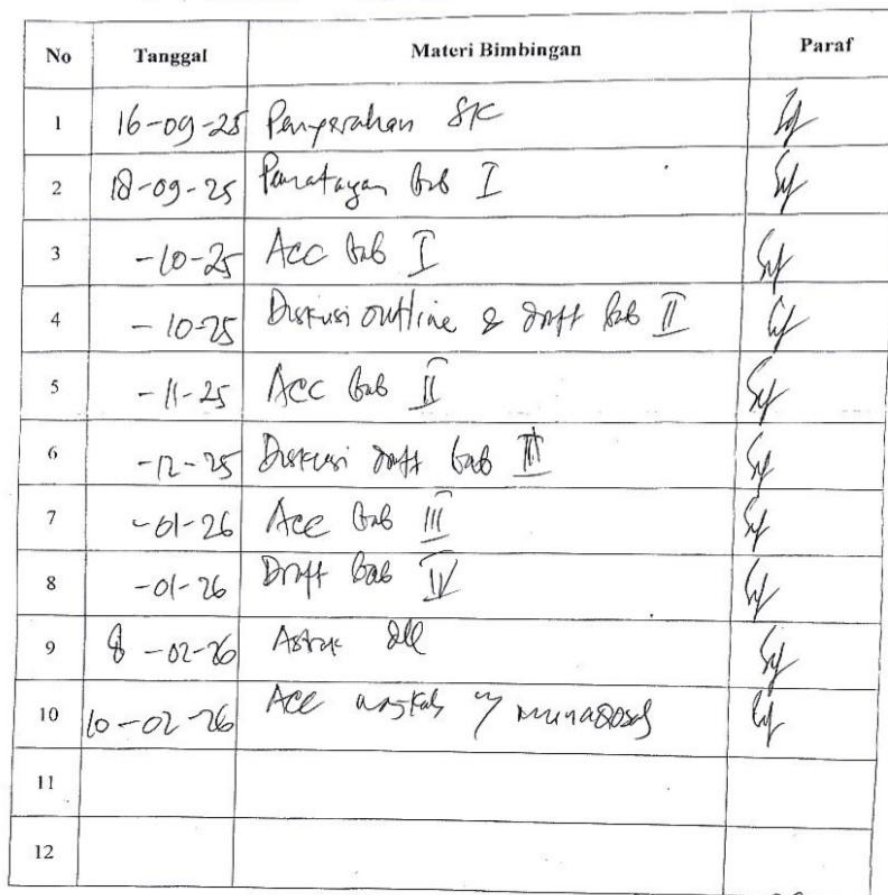 No Tanggal Materi Bimbingan Paraf
1 16-09-25 Penyerahan SK
2 18-09-25 bab I
3 -10-25 Acc bab I
4 -10-25 Diskusi outline & draft bab II
5 -11-25 Acc bab II
6 -12-25 Diskusi draft bab III
7 -01-26 Acc bab III
8 -01-26 Draft bab IV
9 8-02-26 dll
10 10-02-26 Acc
11
12